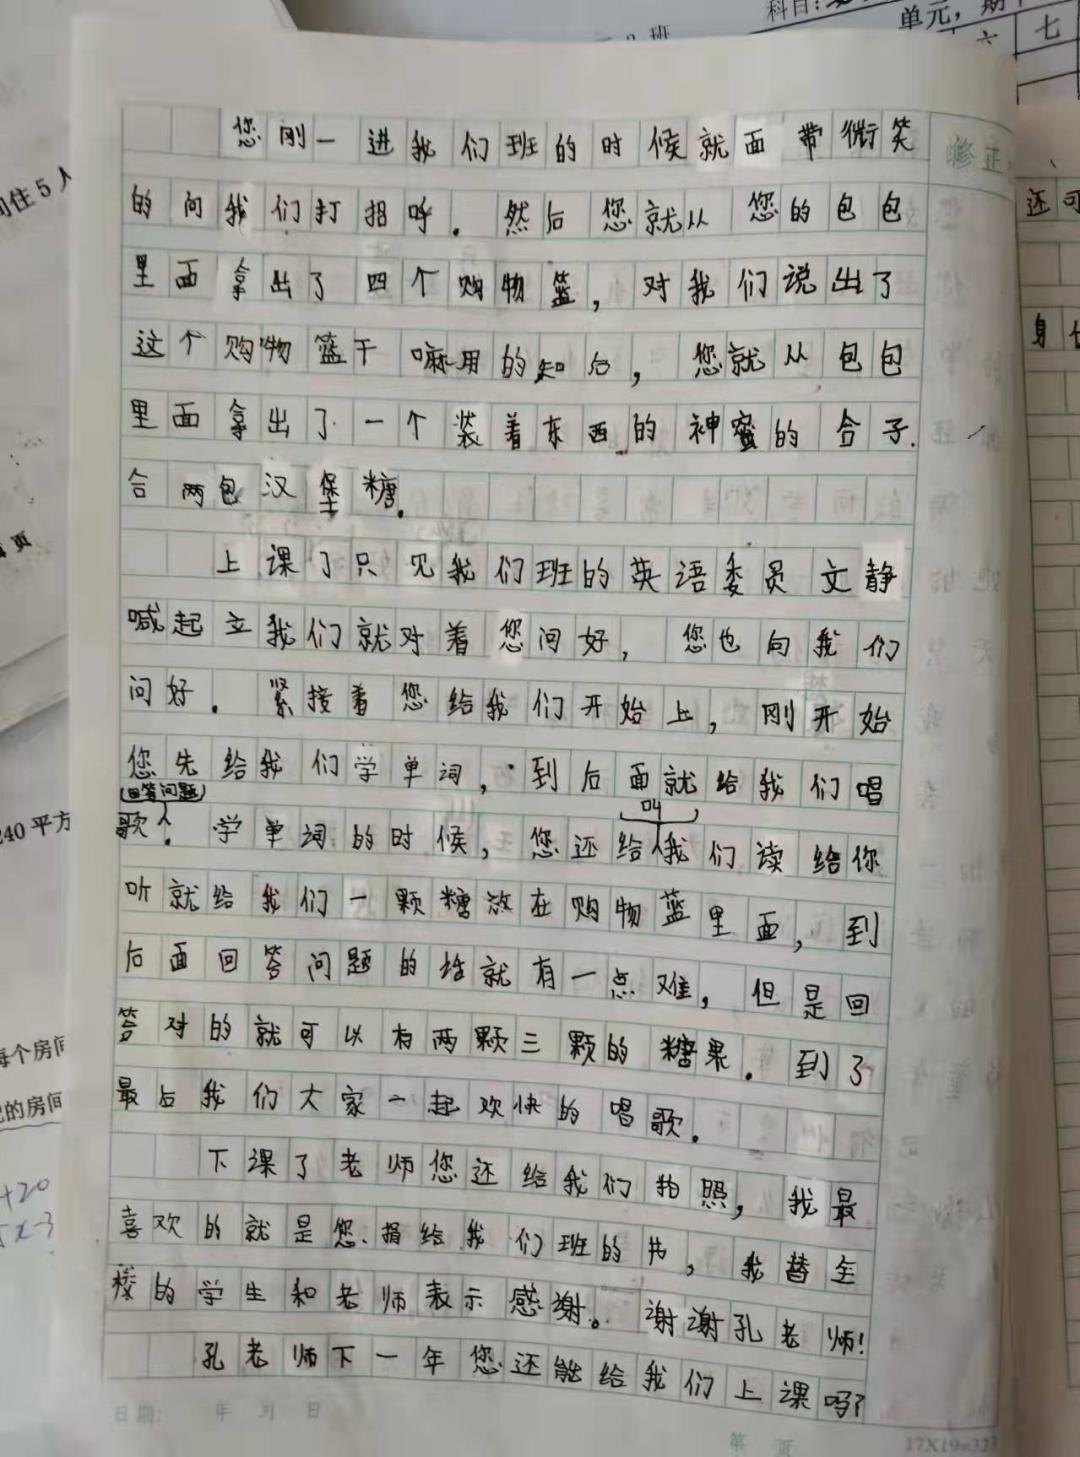 科目:
单元，期
2 班
六
七
间住5人
页
240平方
每个房间
的房间
+20
x-3
还可
身
修正
您刚一进我们班的时候就面带微笑
的问我们打招呼。然后您就从您的包包
里面拿出了四个购物篮，对我们说出了
这个购物篮干嘛用的知后，您就从包包
里面拿出了一个装着东西的神蜜的合子.
合两包汉堡糖.
上课了只见我们班的英语委员文静
喊起立我们就对着您问好，您也向我们
问好。紧接着您给我们开始上，刚开始
您先给我们学单词，到后面就给我们唱
(回答问题)
叫
歌。学单词的时候，您还给我们读给你
听就给我们一颗糖放在购物蓝里面，到
后面回答问题的话就有一点难，但是回
答对的就可以有两颗三颗的糖果。到了
最后我们大家一起欢快的唱歌。
下课了老师您还给我们拍照，我最
喜欢的就是您捐给我们班的书，我替全
校的学生和老师表示感谢。谢谢孔老师!
孔老师下一年您还能给我们上课吗?
日期: 年 月 日
第 页
17X19=323